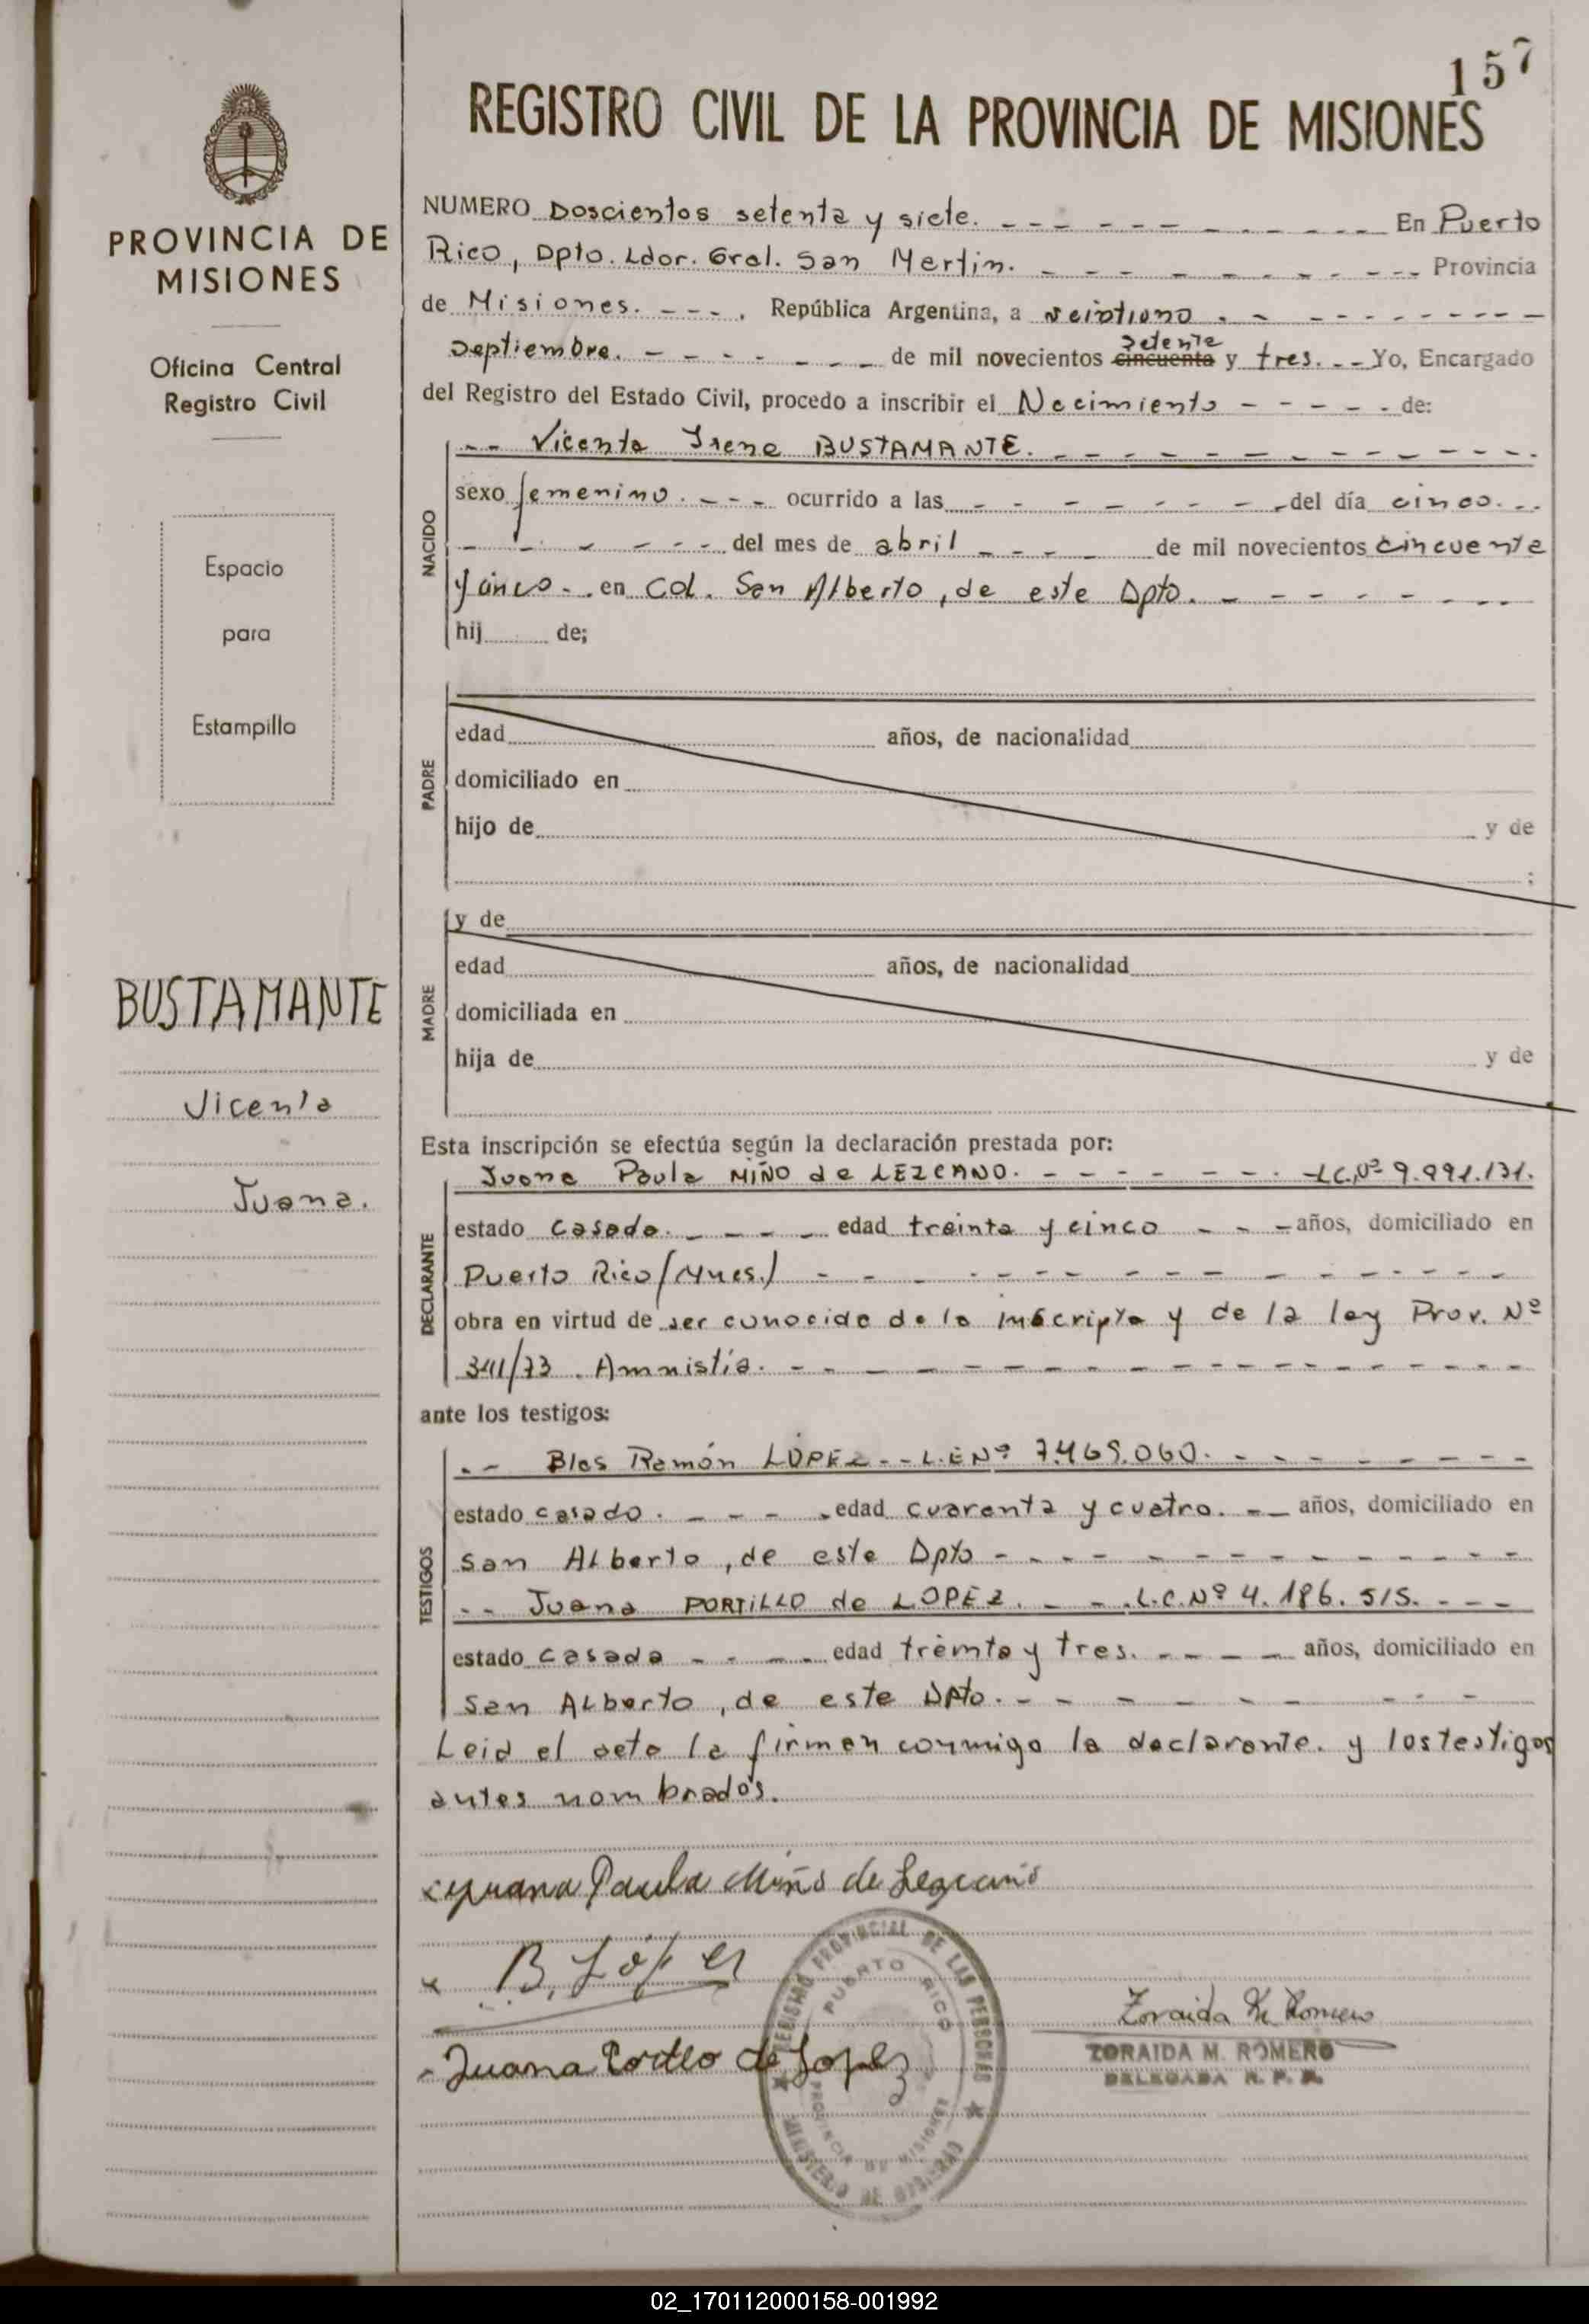 157
REGISTRO CIVIL DE LA PROVINCIA DE MISIONES
PROVINCIA DE
MISIONES
Oficina Central
Registro Civil
Espacio
para
Estampilla
BUSTAMANTE
Vicenta
Juana.
NUMERO Doscientos setenta y siete. En Puerto
Rico, Dpto. Ldor. Gral. San Martin. Provincia
de Misiones. República Argentina, a veintiuno
Septiembre. de mil novecientos setenta cincuenta y tres. Yo, Encargado
del Registro del Estado Civil, procedo a inscribir el Nacimiento de:
NACIDO
Vicenta Irene BUSTAMANTE.
sexo femenino. ocurrido a las del día cinco.
del mes de abril de mil novecientos cincuenta
y cinco. en Col. San Alberto, de este Dpto.
hij de;
PADRE
edad años, de nacionalidad
domiciliado en
hijo de y de
;
MADRE
y de
edad años, de nacionalidad
domiciliada en
hija de y de
Esta inscripción se efectúa según la declaración prestada por:
DECLARANTE
Juana Paula MIÑO de LEZCANO. L.C.Nº 9.991.131.
estado casada. edad treinta y cinco años, domiciliado en
Puerto Rico/Mnes.)
obra en virtud de ser conocida de la inscripta y de la ley Prov. Nº
341/73. Amnistía.
ante los testigos:
TESTIGOS
Blas Ramón LÓPEZ L.E Nº 7.469.060.
estado casado. edad cuarenta y cuatro. años, domiciliado en
San Alberto, de este Dpto
Juana PORTILLO de LOPEZ. L.C.Nº 4.186.515.
estado casada edad treinta y tres. años, domiciliado en
San Alberto, de este Dpto.
Leid el acta la firman conmigo la declarante. y los testigos
antes nombrados.
x Juana Paula Miño de Lezcano
x B. López
Juana Portillo de Lopez
REGISTRO PROVINCIAL DE LAS PERSONAS
PUERTO RICO
PROVINCIA DE MISIONES
MINISTERIO DE GOBIERNO
Zoraida M. Romero
ZORAIDA M. ROMERO
DELEGADA R. P. P.
02_170112000158-001992